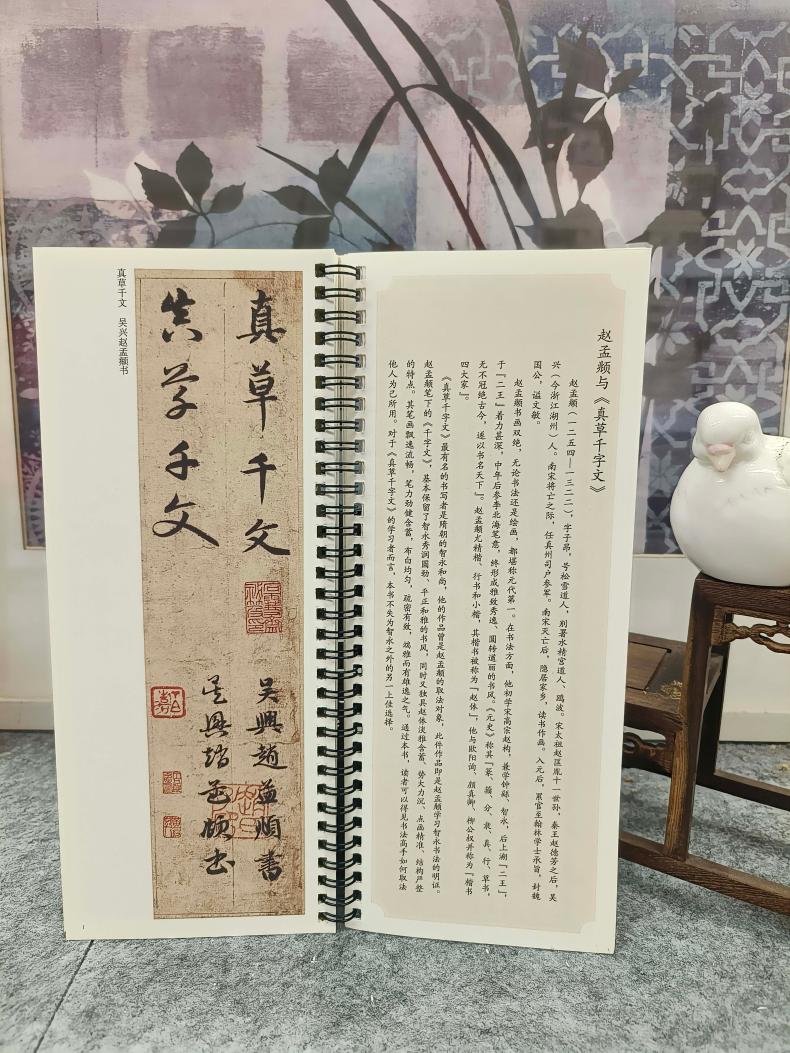 赵孟頫与《真草千字文》
赵孟頫（一二五四—一三二二），字子昂，号松雪道人，别署水精宫道人、鸥波。宋太祖赵匡胤十一世孙，秦王赵德芳之后，吴
兴（今浙江湖州）人。南宋将亡之际，任真州司户参军。南宋灭亡后，隐居家乡，读书作画。入元后，累官至翰林学士承旨，封魏
国公，谥文敏。
赵孟頫书画双绝，无论书法还是绘画，都堪称元代第一。在书法方面，他初学宋高宗赵构，兼学钟繇、智永，后上溯『二王』，
于『二王』着力甚深，中年后参李北海笔意，终形成雅致秀逸、圆转遒丽的书风。《元史》称其『篆、籀、分、隶、真、行、草书，
无不冠绝古今，遂以书名天下』。赵孟頫尤精楷、行书和小楷，其楷书被称为『赵体』，他与欧阳询、颜真卿、柳公权并称为『楷书
四大家』。
《真草千字文》最有名的书写者是隋朝的智永和尚，他的作品曾是赵孟頫的取法对象，此件作品即是赵孟頫学习智永书法的明证。
赵孟頫笔下的《千字文》，基本保留了智永秀润圆劲、平正和雅的书风，同时又独具赵体淡雅含蓄、势大力沉、点画精准、结构严整
的特点。其笔画飘逸流畅，笔力劲健含蓄，布白均匀，疏密有致，端雅而有雄逸之气。通过本书，读者可以得见书法高手如何取法
他人为己所用。对于《真草千字文》的学习者而言，本书不失为智永之外的另一上佳选择。
真草千文
吴興趙孟頫書
真草千文
吴興趙孟頫書
真草千文 吴兴赵孟頫书
1